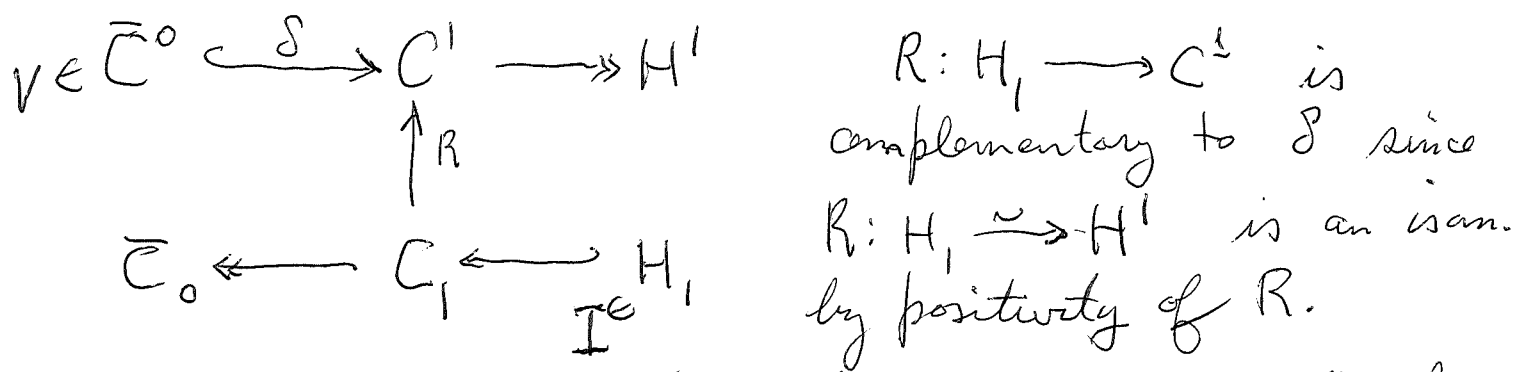 V ∈ C̄⁰ ↪ δ → C¹ ↠ H¹
↑ R
C̄₀ ↞ C₁ ↩ H₁
I ∈
R: H₁ → C¹ is
complementary to δ since
R: H₁ ⥲ H¹ is an isom.
by positivity of R.